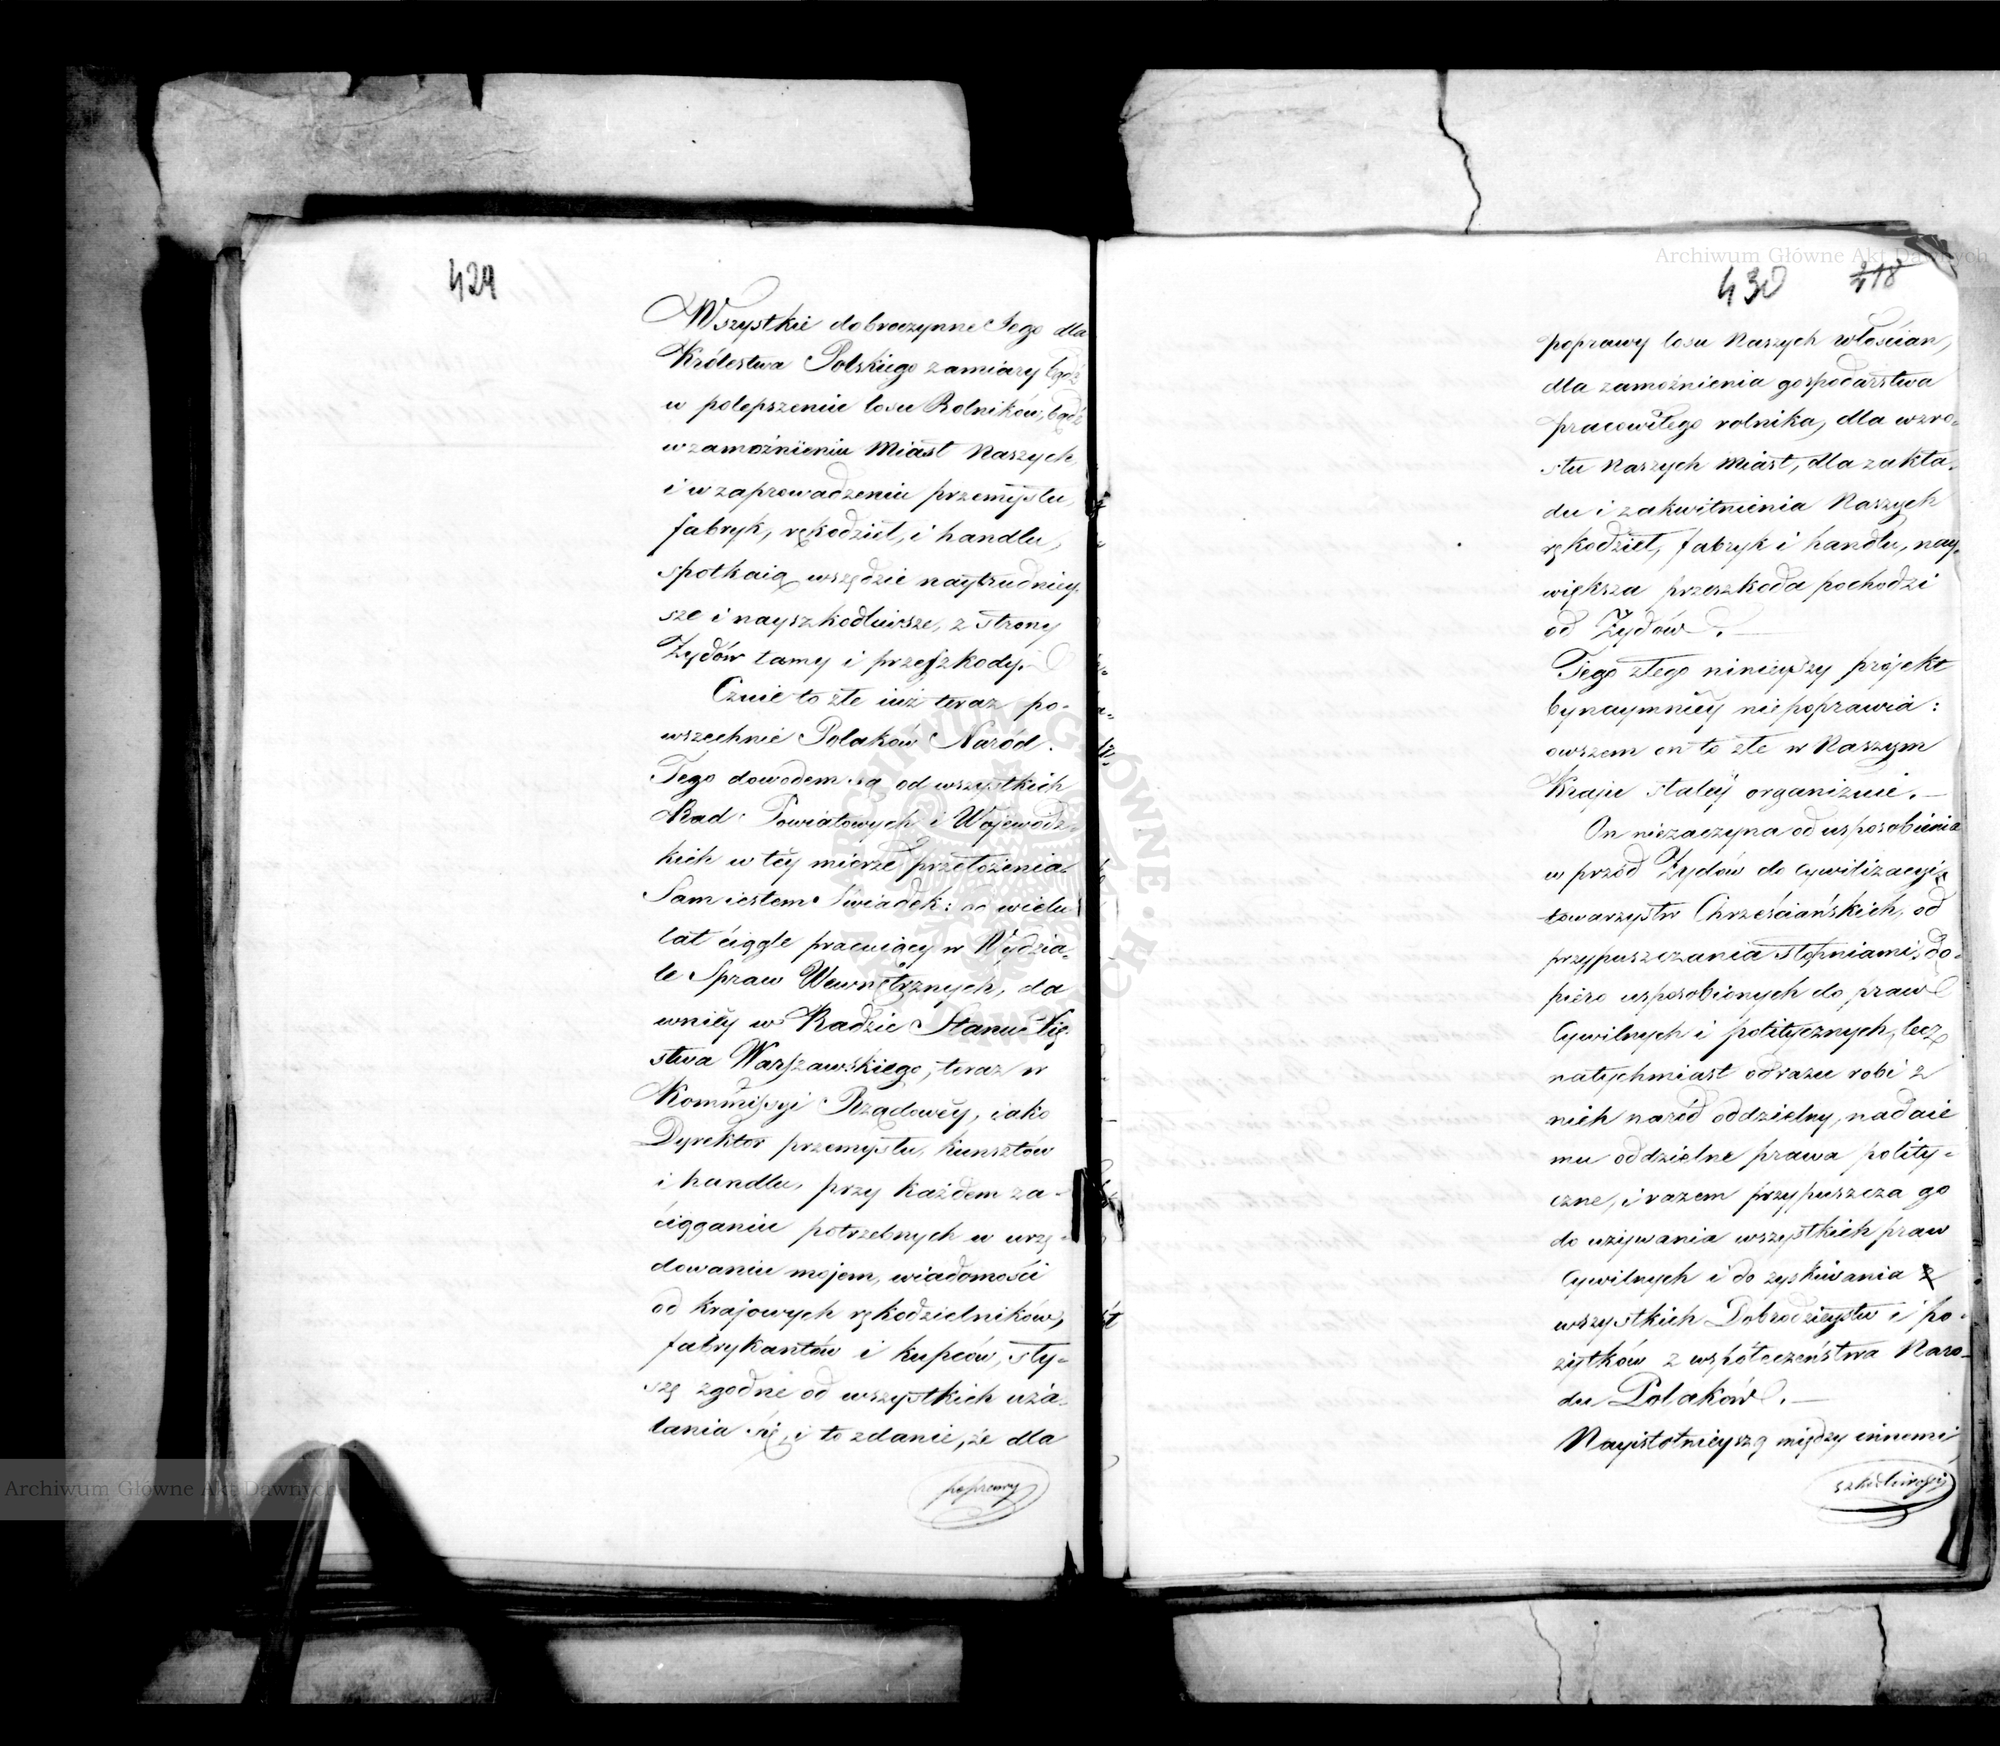 429
Wszystkie dobroczynne Jego dla
Królestwa Polskiego zamiary bądź
w polepszeniu losu Rolników, bądź
w zamożnieniu Miast Naszych
i w zaprowadzeniu przemysłu,
fabryk, rękodzieł, i handlu,
spotkaią wszędzie naytrudniey-
sze i nayszkodliwsze, z strony
Żydów tamy i przeszkody.
Czuie to złe iuż teraz po-
wszechnie Polaków Naród.
Tego dowodem są od wszystkich
Rad Powiatowych i Wojewódz-
kich w téy mierze przełożenia.
Sam iestem świadek: od wielu
lat ciągle pracuiący w Wydzia-
le Spraw Wewnętrznych, da
wniéy w Radzie Stanu Xię-
stwa Warszawskiego, teraz w
Kommissyi Rządowéy, iako
Dyrektor przemysłu, kunsztów
i handlu, przy każdem za-
ciąganiu potrzebnych w urzę-
dowaniu mojem, wiadomości
od krajowych rękodzielników,
fabrykantów i kupców, sły-
szę zgodne od wszystkich uża-
lania się, i to zdanie, że dla
poprawy
Archiwum Główne Akt Dawnych
430 218
poprawy losu Naszych włościan,
dla zamożnienia gospodarstwa
pracowitego rolnika, dla wzro-
stu Naszych Miast, dla zakła-
du i zakwitnienia Naszych
rękodzieł, fabryk i handlu, nay-
większa przeszkoda pochodzi
od Żydów.
Tego złego ninieyszy projekt
bynaymniéy niepoprawia:
owszem on to złe w Naszym
Kraju staléy organizuie.
On niezaczyna od usposobienia
w przód Żydów do cywilizacyi
towarzystw Chrześciańskich, od
przypuszczania stopniami, do-
piéro usposobionych do praw
Cywilnych i politycznych, lecz
natychmiast odrazu robi z
nich naród oddzielny, nadaie
mu oddzielne prawa polity-
czne, i razem przypuszcza go
do używania wszystkich praw
Cywilnych i do zyskiwania z
wszystkich Dobrodzieystw i po-
żytków z współeczeństwa Naro-
du Polaków.
Nayistotnieyszą między innemi
szkodliwością
Archiwum Główne Akt Dawnych